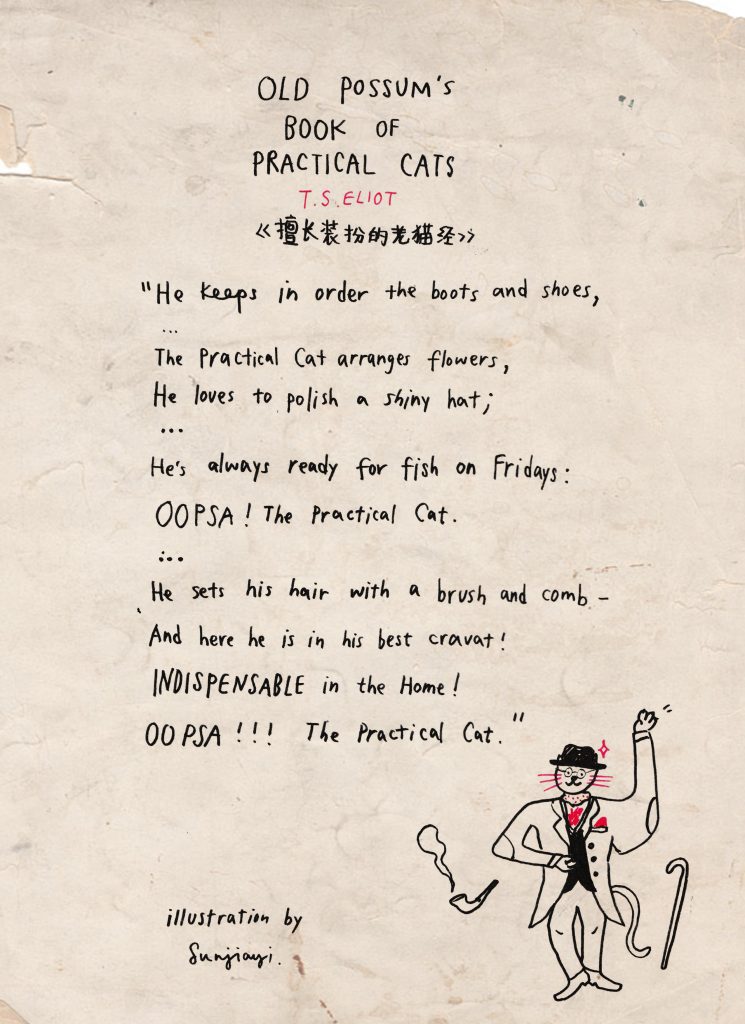 OLD POSSUM'S
BOOK OF
PRACTICAL CATS
T.S.ELIOT
《擅长装扮的老猫经》
"He keeps in order the boots and shoes,
...
The Practical Cat arranges flowers,
He loves to polish a shiny hat;
...
He's always ready for fish on Fridays:
OOPSA! The Practical Cat.
...
He sets his hair with a brush and comb –
And here he is in his best cravat!
INDISPENSABLE in the Home!
OOPSA!!! The Practical Cat."
illustration by
Sunjiayi.